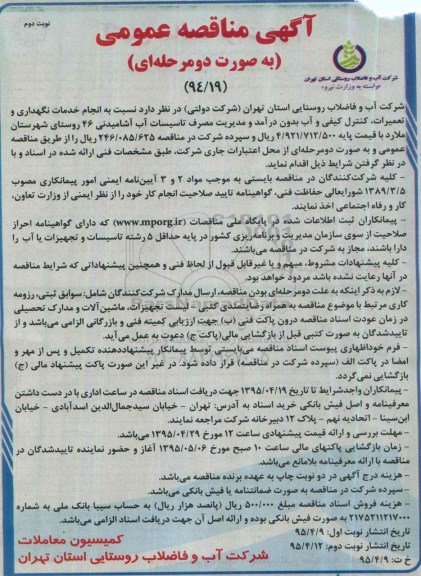 نوبت دوم
آگهی مناقصه عمومی
(به صورت دومرحله‌ای)
(۹۴/۱۹)
شرکت آب و فاضلاب روستایی استان تهران
وابسته به وزارت نیرو
شرکت آب و فاضلاب روستایی استان تهران (شرکت دولتی) در نظر دارد نسبت به انجام خدمات نگهداری و
تعمیرات، کنترل کیفی و آب بدون درآمد و مدیریت مصرف تاسیسات آب آشامیدنی ۴۶ روستای شهرستان
ملارد با قیمت پایه ۴/۹۲۱/۷۱۲/۵۰۰ ریال و سپرده شرکت در مناقصه ۲۴۶/۰۸۵/۶۲۵ ریال را از طریق مناقصه
عمومی و به صورت دومرحله‌ای از محل اعتبارات جاری شرکت، طبق مشخصات فنی ارائه شده در اسناد و با
در نظر گرفتن شرایط ذیل اقدام نماید.
- کلیه شرکت‌کنندگان در مناقصه بایستی به موجب مواد ۲ و ۳ آیین‌نامه ایمنی امور پیمانکاری مصوب
۱۳۸۹/۳/۵ شورایعالی حفاظت فنی، گواهینامه تایید صلاحیت انجام کار خود را از نظر ایمنی از وزارت تعاون،
کار و رفاه اجتماعی اخذ نمایند.
- پیمانکاران ثبت اطلاعات شده در پایگاه ملی مناقصات (www.mporg.ir) که دارای گواهینامه احراز
صلاحیت از سوی سازمان مدیریت و برنامه‌ریزی کشور در پایه حداقل ۵ رشته تاسیسات و تجهیزات یا آب را
دارا باشند، مجاز به شرکت در مناقصه می‌باشند.
- کلیه پیشنهادات مشروط، مبهم و یا غیرقابل قبول از لحاظ فنی و همچنین پیشنهاداتی که شرایط مناقصه
در آنها رعایت نشده باشد مردود خواهد بود.
- لازم به ذکر اینکه به علت دومرحله‌ای بودن مناقصه، ارسال مدارک شرکت‌کنندگان شامل: سوابق ثبتی، رزومه
کاری مرتبط با موضوع مناقصه به همراه رضایتمندی کتبی - لیست تجهیزات، ماشین‌آلات و مدارک تحصیلی
در زمان عودت اسناد مناقصه درون پاکت فنی (ب) جهت ارزیابی کمیته فنی و بازرگانی الزامی می‌باشد و از
تاییدشدگان به صورت کتبی قبل از بازگشایی مالی (پاکت ج) دعوت به عمل می‌آید.
- فرم خوداظهاری پیوست اسناد مناقصه می‌بایستی توسط پیمانکار پیشنهاددهنده تکمیل و پس از مهر و
امضا در پاکت الف (سپرده شرکت در مناقصه) قرار داده شود. در غیر این صورت پاکت پیشنهاد مالی (ج)
بازگشایی نمی‌گردد.
- پیمانکاران واجدشرایط تا تاریخ ۱۳۹۵/۰۴/۱۹ جهت دریافت اسناد مناقصه در ساعت اداری با در دست داشتن
معرفینامه و اصل فیش بانکی خرید اسناد به آدرس: تهران - خیابان سیدجمال‌الدین اسدآبادی - خیابان
ابن‌سینا - اتحادیه نهم - پلاک ۱۲ دبیرخانه شرکت مراجعه نمایند.
- مهلت بررسی و ارائه قیمت پیشنهادی ساعت ۱۲ مورخ ۱۳۹۵/۰۴/۲۹ می‌باشد.
- زمان بازگشایی پاکتهای مالی ساعت ۱۰ صبح مورخ ۱۳۹۵/۰۵/۰۶ آغاز و حضور نماینده تاییدشدگان در
مناقصه با ارائه معرفینامه بلامانع می‌باشد.
- هزینه درج آگهی در دو نوبت چاپ به عهده برنده مناقصه می‌باشد.
- سپرده شرکت در مناقصه به صورت ضمانتنامه یا فیش بانکی می‌باشد.
- هزینه فروش اسناد مناقصه مبلغ ۵۰۰/۰۰۰ ریال (پانصد هزار ریال) به حساب سیبا بانک ملی به شماره
۲۱۷۵۲۱۱۲۱۷۰۰۰ به صورت فیش بانکی بوده و ارائه اصل آن جهت دریافت اسناد الزامی می‌باشد.
تاریخ انتشار نوبت اول: ۹۵/۴/۹
تاریخ انتشار نوبت دوم: ۹۵/۴/۱۲
خ ت: ۹۵/۴/۹
کمیسیون معاملات
شرکت آب و فاضلاب روستایی استان تهران